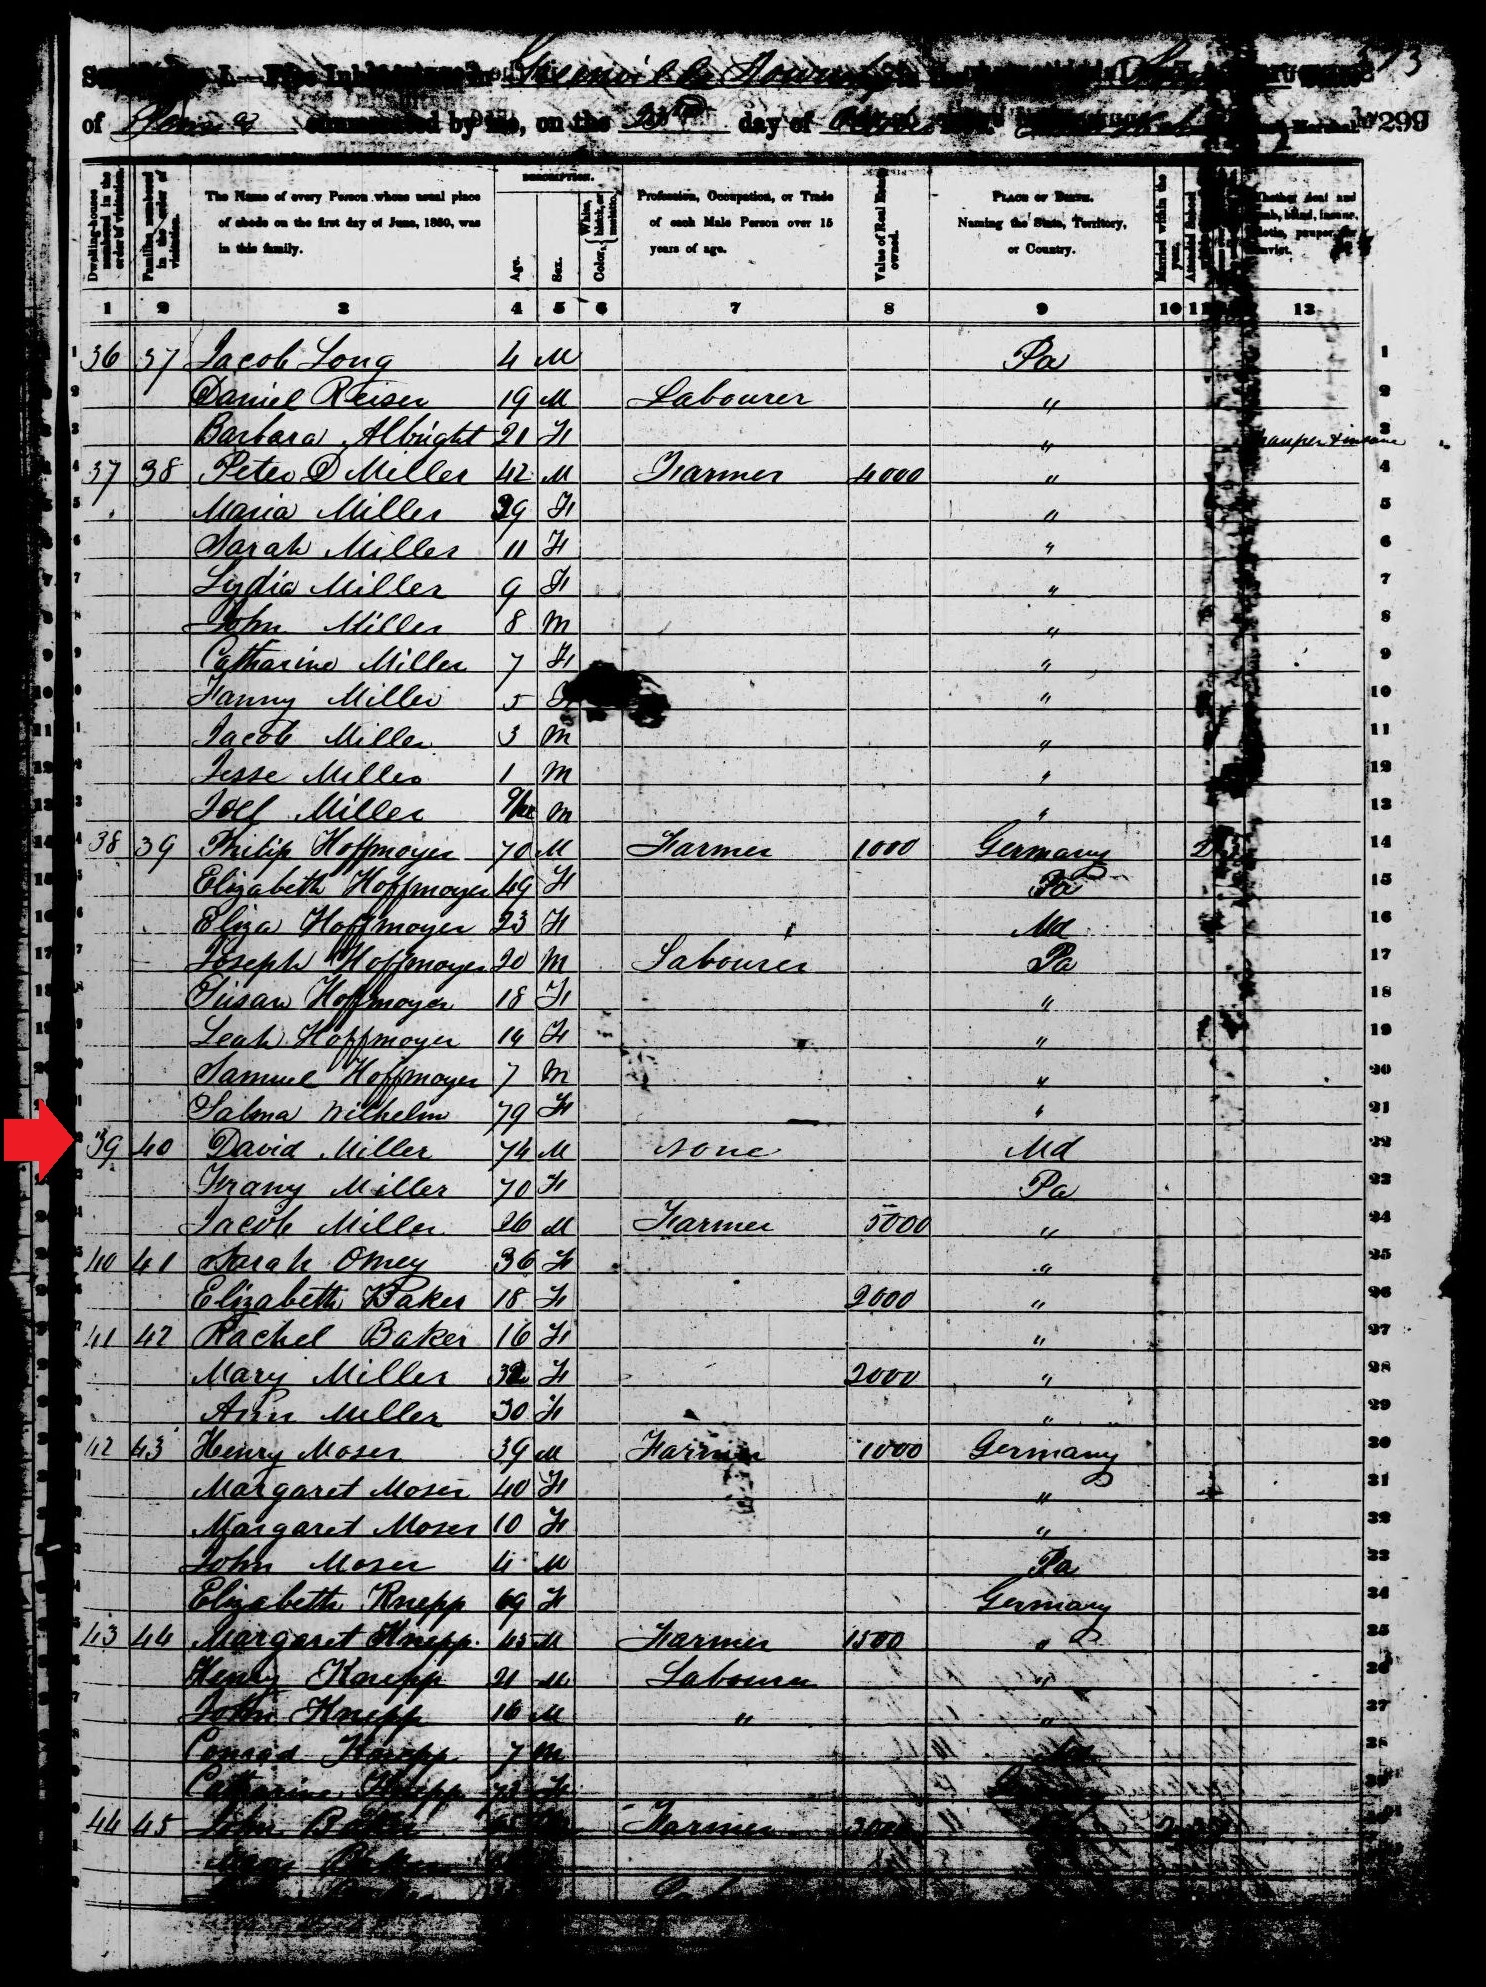 Greenville Township
of Penna enumerated by me, on the 25th day of 299
Dwelling-houses numbered in the order of visitation.
Families numbered in the order of visitation.
The Name of every Person whose usual place of abode on the first day of June, 1850, was in this family.
DESCRIPTION.
Age.
Sex.
Color, White, black, or mulatto.
Profession, Occupation, or Trade of each Male Person over 15 years of age.
Value of Real Estate owned.
PLACE OF BIRTH. Naming the State, Territory, or Country.
Married within the year.
Attended School
Whether deaf and dumb, blind, insane, idiotic, pauper, or convict.
1 2 3 4 5 6 7 8 9 10 11 13
1 36 37 Jacob Long 4 M Pa 1
2 Daniel Reiser 19 M Labourer " 2
3 Barbara Albright 21 F " pauper & insane 3
4 37 38 Peter D Miller 42 M Farmer 4000 " 4
5 Maria Miller 39 F " 5
6 Sarah Miller 11 F " 6
7 Lydia Miller 9 F " 7
8 John Miller 8 M " 8
9 Catharine Miller 7 F " 9
10 Fanny Miller 5 F " 10
11 Jacob Miller 3 M " 11
12 Jesse Miller 1 M " 12
13 Joel Miller 9/12 M " 13
14 38 39 Philip Hoffmoyer 70 M Farmer 1000 Germany 14
15 Elizabeth Hoffmoyer 49 F Pa 15
16 Eliza Hoffmoyer 23 F Md 16
17 Joseph Hoffmoyer 20 M Labourer Pa 17
18 Susan Hoffmoyer 18 F " 18
19 Leah Hoffmoyer 14 F " 19
20 Samuel Hoffmoyer 7 M " 20
21 Salma Wilhelm 79 F " 21
22 39 40 David Miller 74 M none Md 22
23 Frany Miller 70 F Pa 23
24 Jacob Miller 26 M Farmer 5000 " 24
25 40 41 Sarah Omey 36 F " 25
26 Elizabeth Baker 18 F 2000 " 26
27 41 42 Rachel Baker 16 F " 27
28 Mary Miller 32 F 2000 " 28
29 Ann Miller 30 F " 29
30 42 43 Henry Moser 39 M Farmer 1000 Germany 30
31 Margaret Moser 40 F " 31
32 Margaret Moser 10 F " 32
33 John Moser 4 M Pa 33
34 Elizabeth Knepp 69 F Germany 34
35 43 44 Margaret Knepp 45 M Farmer 1500 " 35
36 Henry Knepp 21 M Labourer " 36
37 John Knepp 16 M " " 37
38 Conrad Knepp 7 M Md 38
39 Catharine Knepp 73 F 39
44 45 John Baker Farmer
Baker